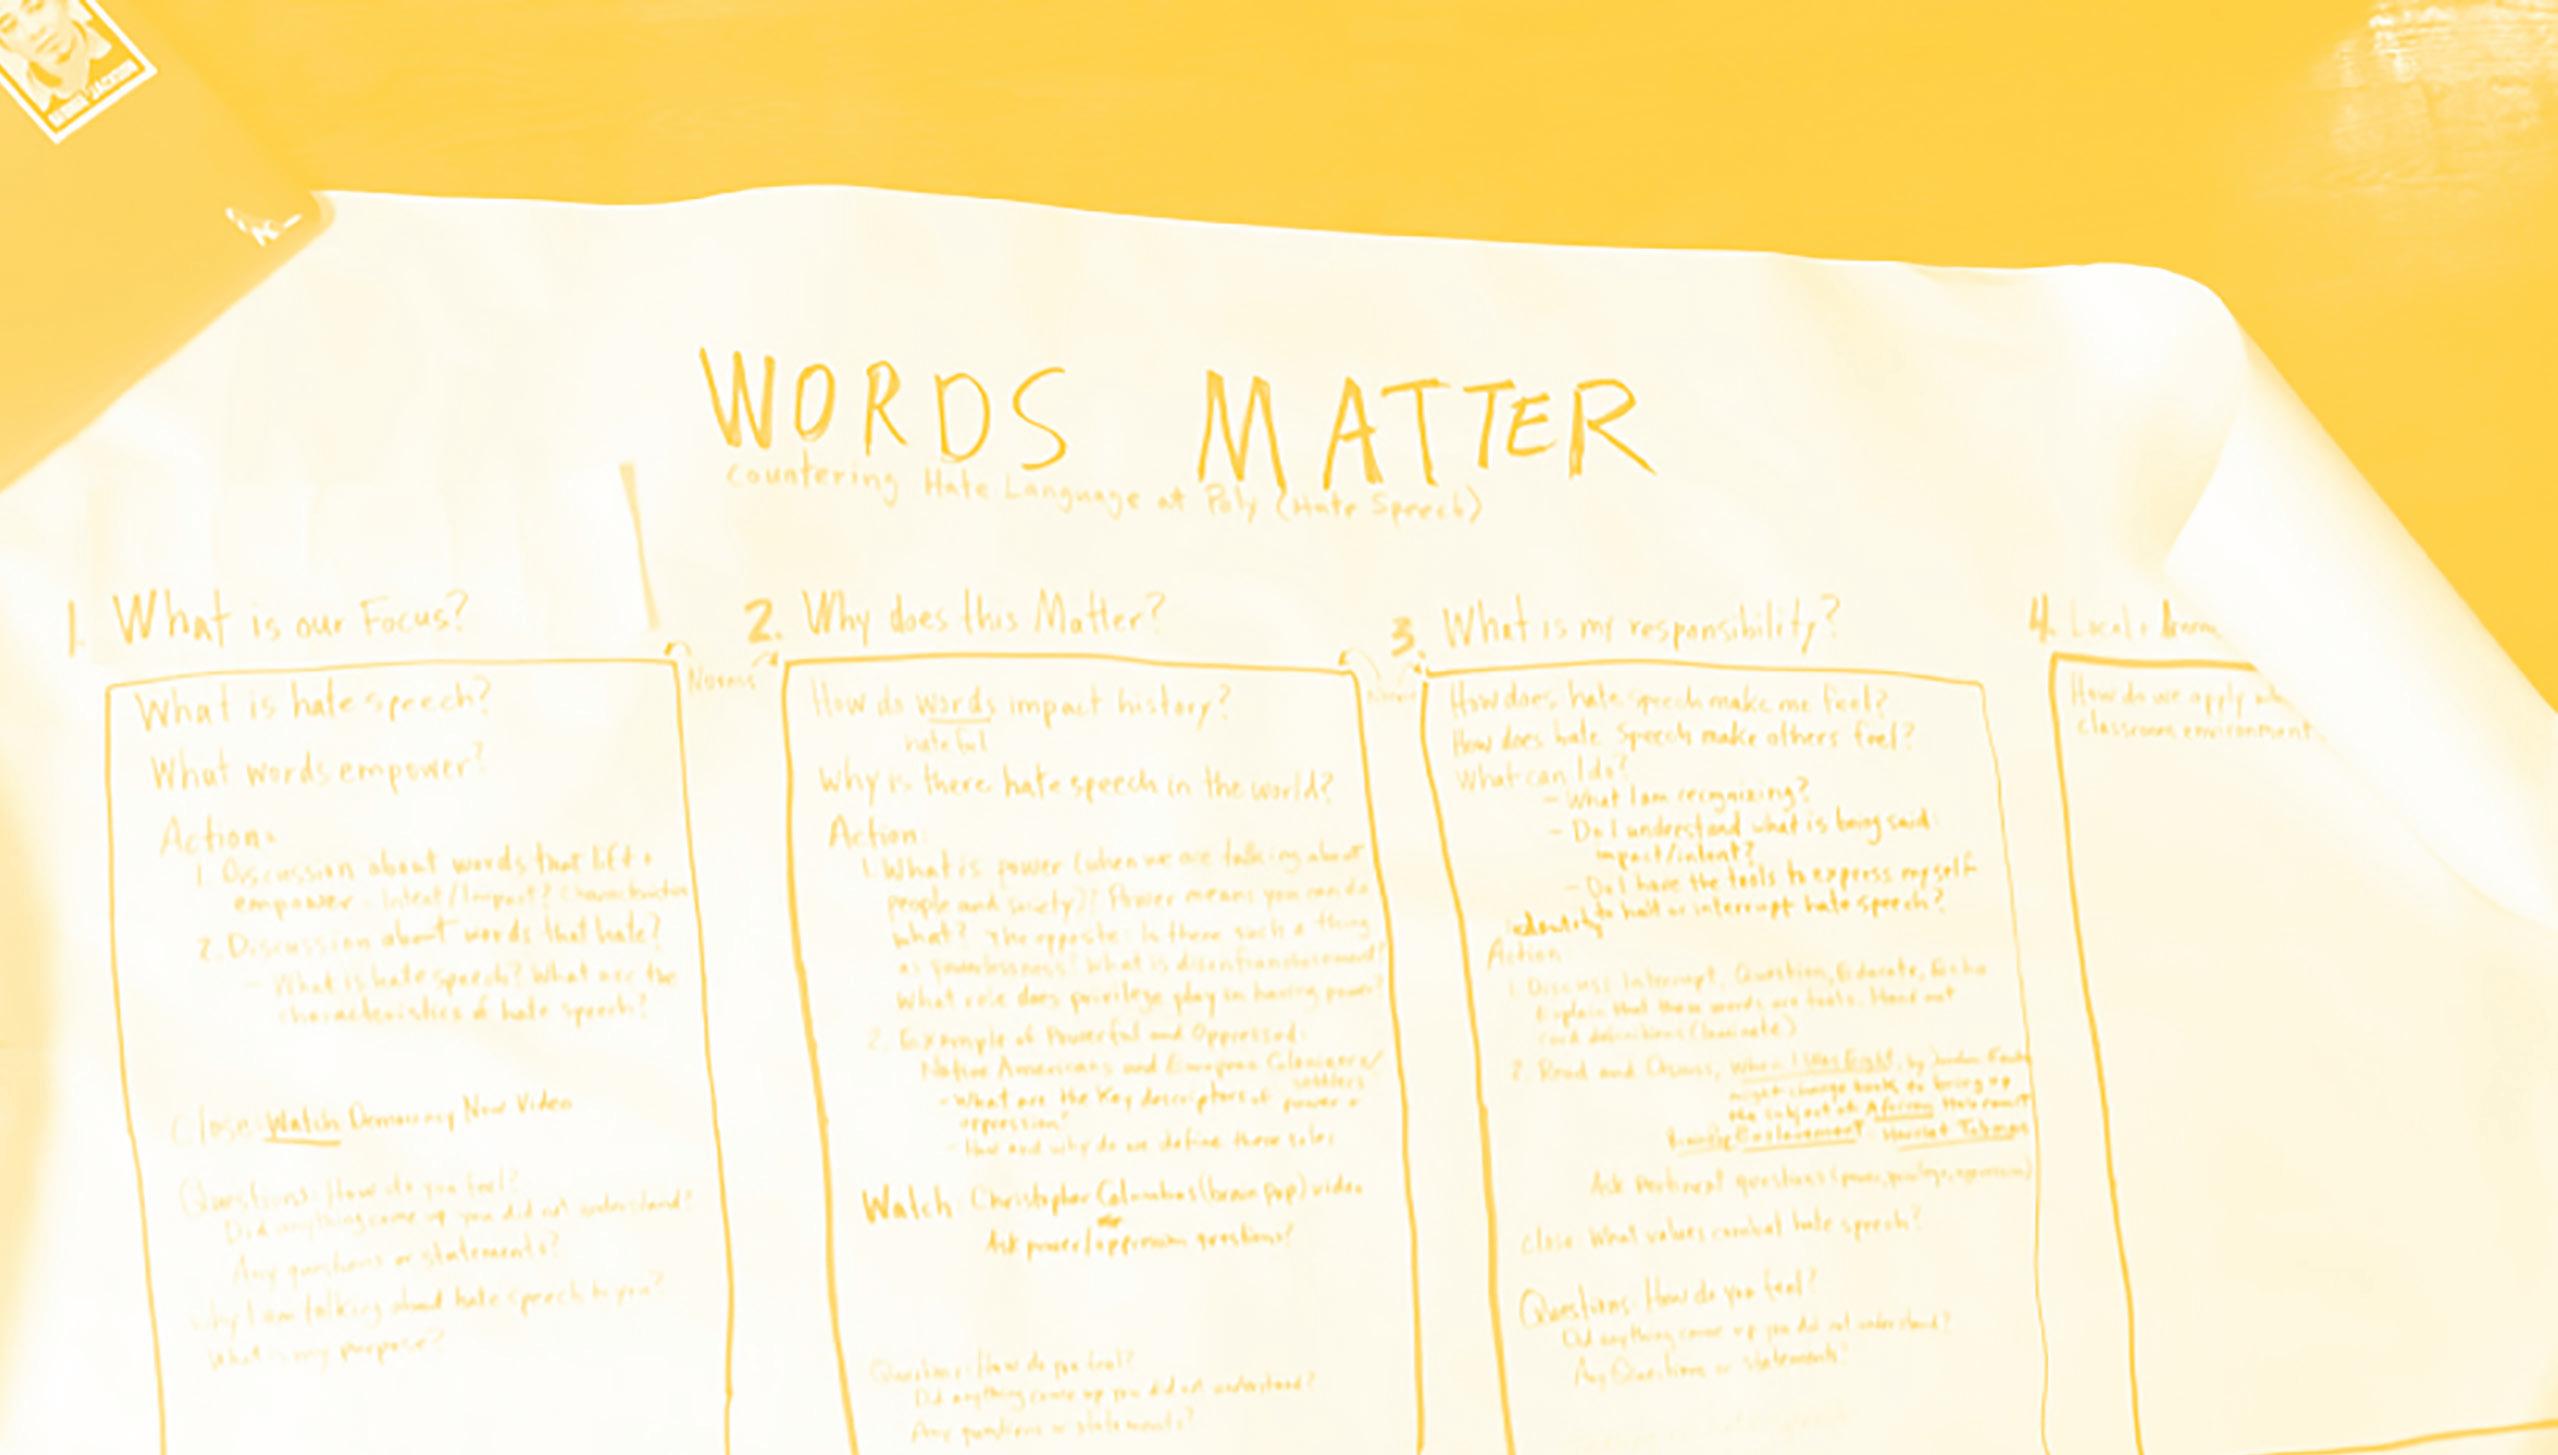 JACKSON
WORDS MATTER
Countering Hate Language at Poly (Hate Speech)
1. What is our Focus?
What is hate speech?
What words empower?
Action:
1. Discussion about words that lift +
empower - Intent/Impact? Characteristics
2. Discussion about words that hate?
- What is hate speech? What are the
characteristics of hate speech?
Close: Watch Democracy Now Video
Questions: How do you feel?
Did anything come up you did not understand?
Any questions or statements?
Why I am talking about hate speech to you?
What is my purpose?
Norms
2. Why does this Matter?
How do words impact history?
hateful
Why is there hate speech in the world?
Action:
1. What is power (when we are talking about
people and society)? Power means you can do
what? The opposite: Is there such a thing
as powerlessness? What is disenfranchisement?
What role does privilege play in having power?
2. Example of Powerful and Oppressed:
Native Americans and European Colonizers/
settlers
- What are the Key descriptors of power +
oppression?
- How and why do we define these roles
Watch: Christopher Columbus (brain pop) video
Ask power/oppression questions?
Questions: How do you feel?
Did anything come up you did not understand?
Any questions or statements?
Norms
3. What is my responsibility?
How does hate speech make me feel?
How does hate speech make others feel?
What can I do?
- What I am recognizing?
- Do I understand what is being said:
impact/intent?
- Do I have the tools to express myself
to halt or interrupt hate speech?
identity
Action:
1. Discuss Interrupt, Question, Educate, Echo
Explain that these words are tools. Hand out
card definitions (laminate)
2. Read and Discuss, When I Was Eight, by
might change book to bring up
the subject of African
Enslavement - Harriet Tubman
Ask pertinent questions (power, privilege, oppression)
Close: What values combat hate speech?
Questions: How do you feel?
Did anything come up you did not understand?
Any Questions or statements?
4. Local
How do we apply
classroom environment